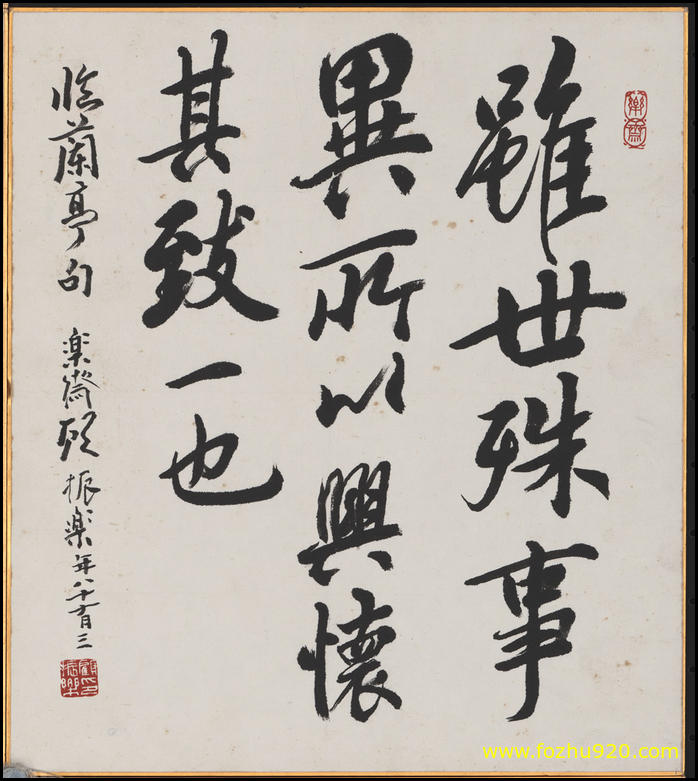 雖世殊事
異所以興懷
其致一也
臨蘭亭句 楽齋顧振楽年八十有三
樂齋
顧印振樂
www.fozhu920.com